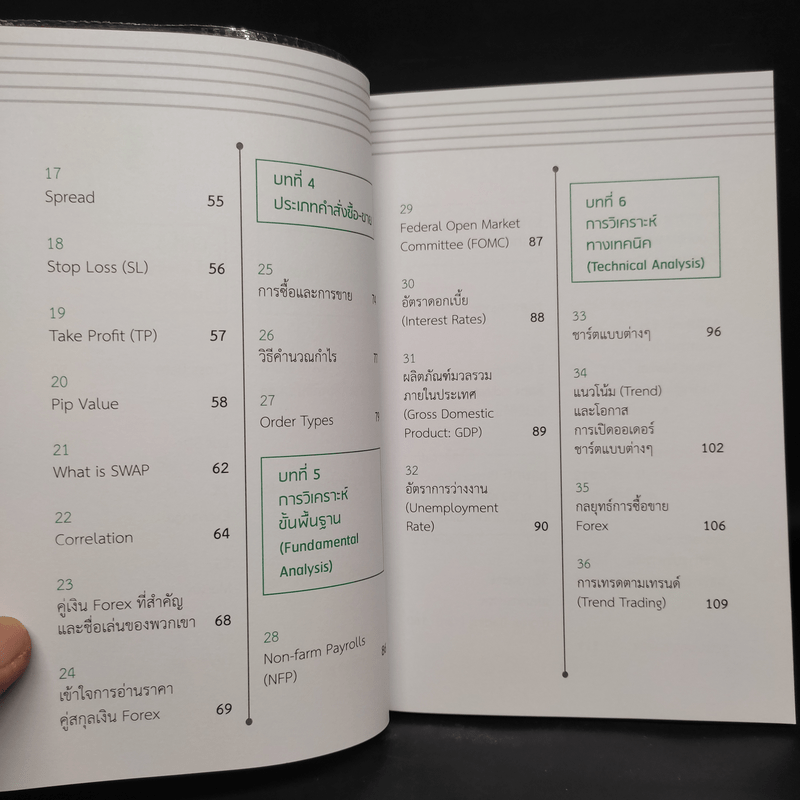 17
Spread 55
18
Stop Loss (SL) 56
19
Take Profit (TP) 57
20
Pip Value 58
21
What is SWAP 62
22
Correlation 64
23
คู่เงิน Forex ที่สำคัญ
และชื่อเล่นของพวกเขา 68
24
เข้าใจการอ่านราคา
คู่สกุลเงิน Forex 69
บทที่ 4
ประเภทคำสั่งซื้อ-ขาย
25
การซื้อและการขาย
26
วิธีคำนวณกำไร
27
Order Types
บทที่ 5
การวิเคราะห์
ขั้นพื้นฐาน
(Fundamental
Analysis)
28
Non-farm Payrolls
(NFP)
29
Federal Open Market
Committee (FOMC) 87
30
อัตราดอกเบี้ย
(Interest Rates) 88
31
ผลิตภัณฑ์มวลรวม
ภายในประเทศ
(Gross Domestic
Product: GDP) 89
32
อัตราการว่างงาน
(Unemployment
Rate) 90
บทที่ 6
การวิเคราะห์
ทางเทคนิค
(Technical Analysis)
33
ชาร์ตแบบต่างๆ 96
34
แนวโน้ม (Trend)
และโอกาส
การเปิดออเดอร์
ชาร์ตแบบต่างๆ 102
35
กลยุทธ์การซื้อขาย
Forex 106
36
การเทรดตามเทรนด์
(Trend Trading) 109